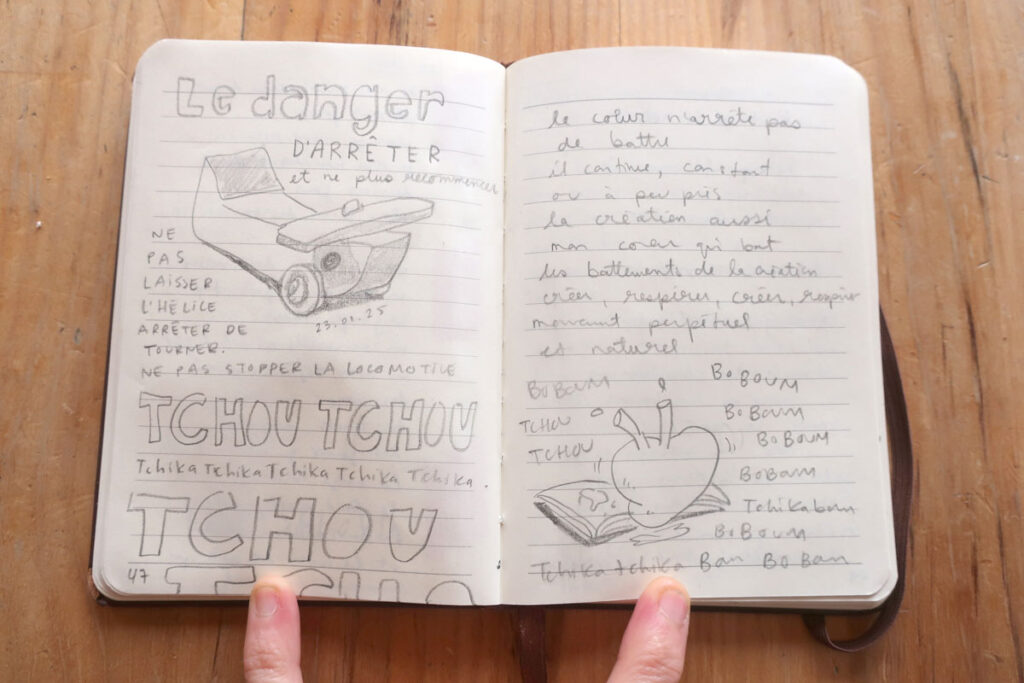 Le danger
D'ARRÊTER
et ne plus recommencer
NE
PAS
LAISSER
L'HÉLICE
ARRÊTER DE
TOURNER.
NE PAS STOPPER LA LOCOMOTIVE
23.01.25
TCHOU TCHOU
Tchika Tchika Tchika Tchika Tchika.
TCHOU
TCHO
47
le coeur n'arrête pas
de battre
il continue, constant
ou à peu près
la création aussi
mon coeur qui bat
les battements de la création
créer, respirer, créer, respirer
mouvement perpétuel
et naturel
BOBOUM
BOBOUM
TCHOU
BOBOUM
TCHOU
BOBOUM
BOBOUM
Tchikaboum
BOBOUM
Tchika tchika Bam Bo Bam